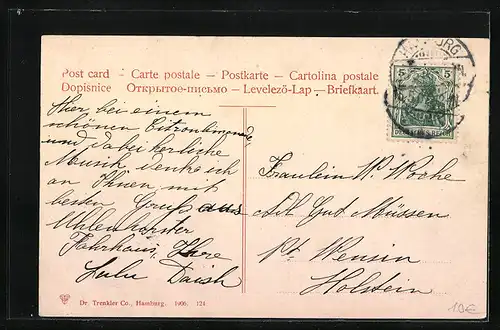 Post card – Carte postale – Postkarte – Cartolina postale
Dopisnice Открытое-письмо – Levelező-Lap – Briefkaart.
HAMBURG
5 5
Hier bei einem
schönen
und dabei herrliche
Musik, denke ich
an Ihnen mit
besten Gruß aus
Uhlenhorster
Fährhaus, Ihre
Fräulein W. Woche
Adl. Gut Müssen
Pr. Wensin
Holstein
Dr. Trenkler Co., Hamburg. 1906. 124
10€